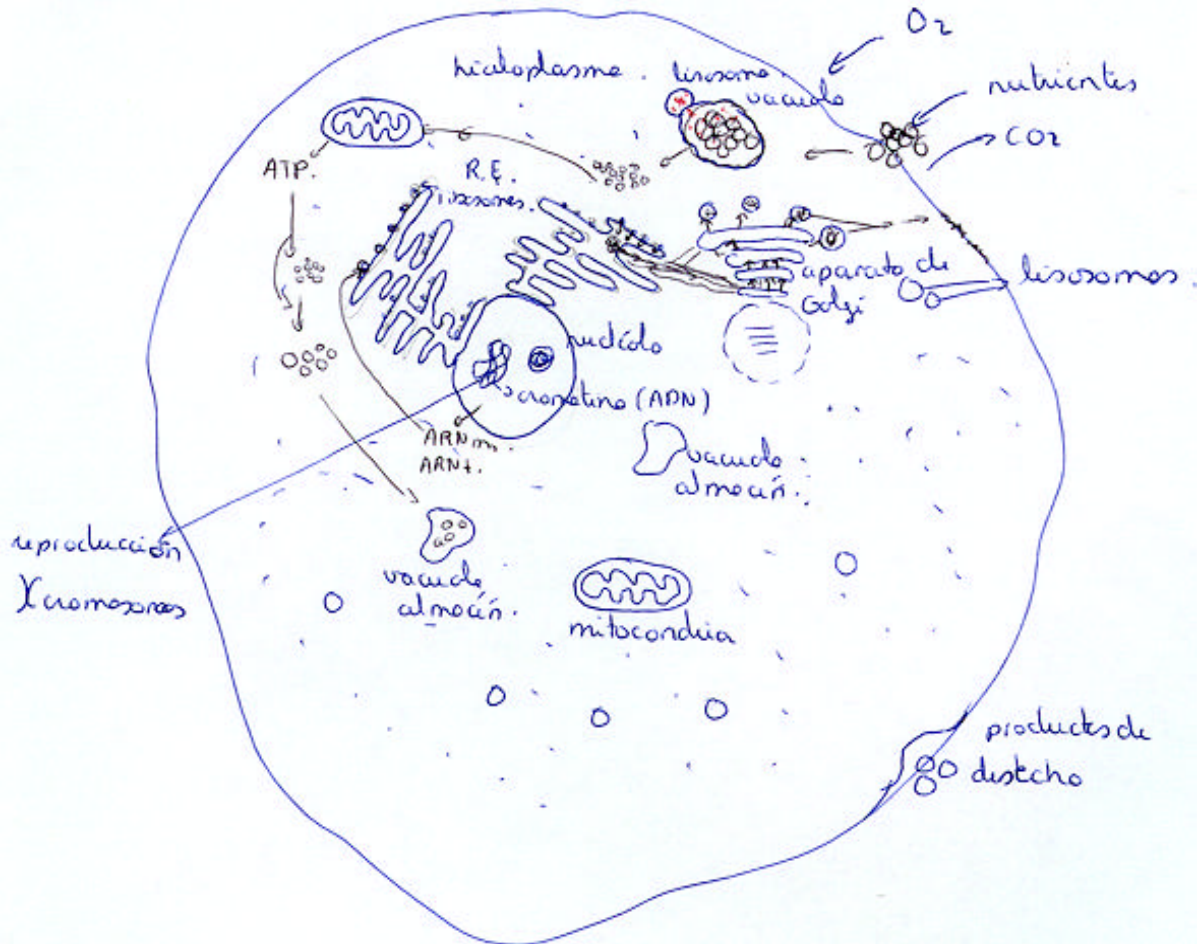 O2
hialoplasma.
lisosoma
vacuola
nutrientes
CO2
ATP.
R.E.
ribosomas.
aparato de
Golgi
lisosomas.
nucléolo
cromatina (ADN)
ARNm.
ARNt.
vacuola
almacén.
reproducción
cromosomas
vacuola
almacén.
mitocondria
productos de
desecho